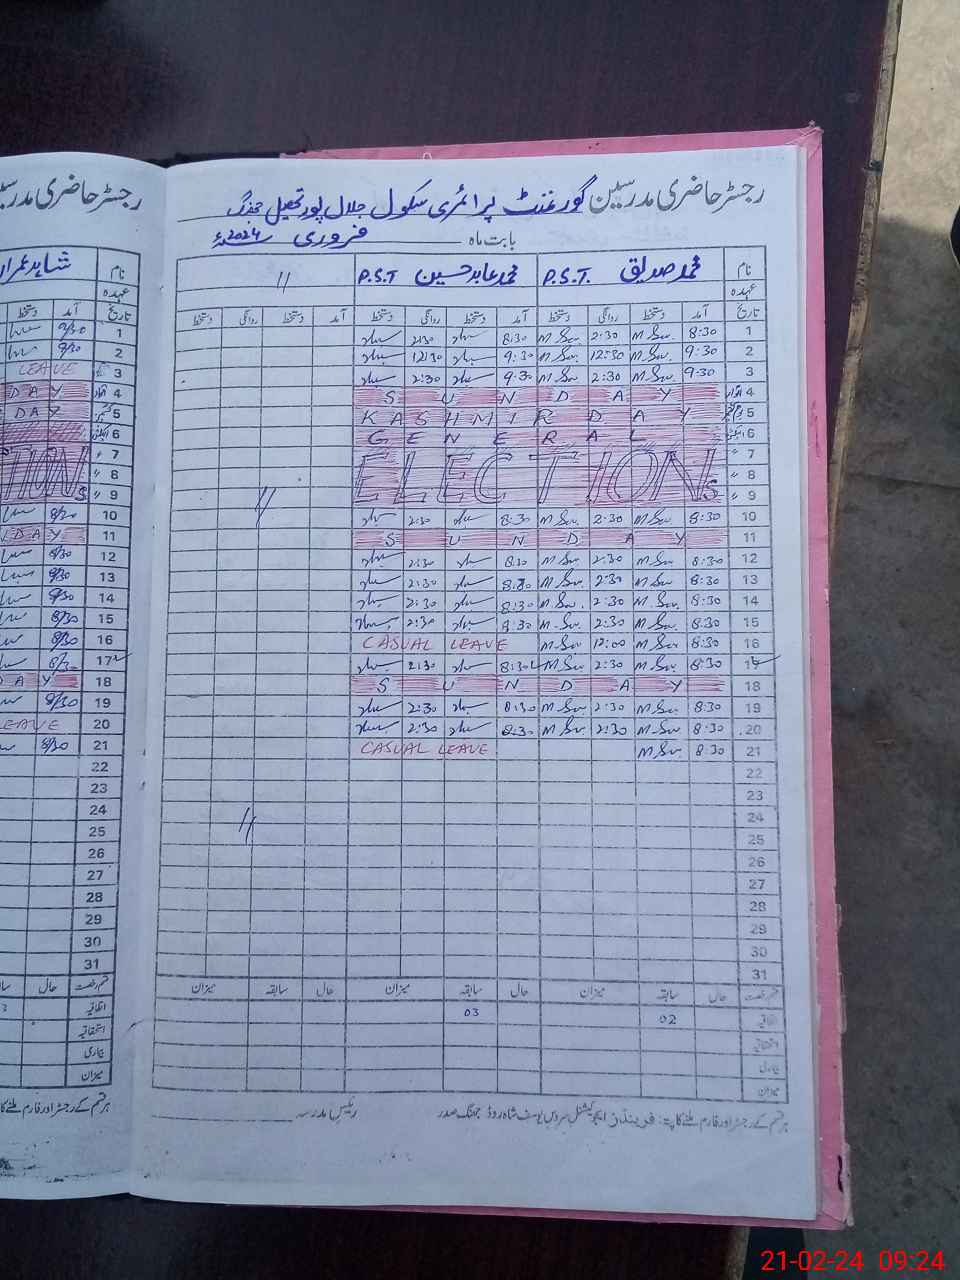 رجسٹر حاضری مدرسین گورنمنٹ پرائمری سکول جلال پور تحصیل جھنگ
بابت ماہ فروری 2024ء
نام محمد صدیق P.S.T. محمد عابد حسین P.S.T "
عہدہ
تاریخ آمد دستخط روانگی دستخط آمد دستخط روانگی دستخط آمد دستخط روانگی دستخط
1 8:30 M Sw. 2:30 M Sw. 8:30 2:30
2 9:30 M Sw. 12:30 M Sw. 9:30 12:30
3 9:30 M Sw. 2:30 M Sw. 9:30 2:30
4 اتوار SUNDAY
5 KASHMIR DAY
6 الیکشن GENERAL
7 " ELECTIONs
8 "
9 "
10 8:30 M Sw. 2:30 M Sw. 8:30 2:30
11 SUNDAY
12 8:30 M Sw. 2:30 M Sw. 8:30 2:30
13 8:30 M Sw. 2:30 M Sw. 8:30 2:30
14 8:30 M Sw. 2:30 M Sw. 8:30 2:30
15 8:30 M Sw. 2:30 M Sw. 8:30 2:30
16 8:30 M Sw. 12:00 M Sw. CASUAL LEAVE
17 8:30 M Sw. 2:30 M Sw. 8:30 2:30
18 SUNDAY
19 8:30 M Sw. 2:30 M Sw. 8:30 2:30
20 8:30 M Sw. 2:30 M Sw. 8:30 2:30
21 8:30 M Sw. CASUAL LEAVE
22
23
24
25
26
27
28
29
30
31
قسم رخصت حال سابقہ میزان حال سابقہ میزان حال سابقہ میزان
اتفاقیہ 02 03
استحقاقیہ
بیماری
میزان
رئیس مدرسہ
ہر قسم کے رجسٹر اور فارم ملنے کا پتہ: فرینڈز ایجوکیشنل سروس یوسف شاہ روڈ جھنگ صدر
رجسٹر حاضری
نام شاہد عمران
عہدہ
تاریخ آمد دستخط
1
2 9/30
3 LEAVE
4 اتوار DAY
5 DAY
6 الیکشن
7 " TIONs
8 "
9 "
10 8/30
11 DAY
12 8/30
13 8/30
14 8/30
15 8/30
16 8/30
17 8/30
18 DAY
19 8/30
20 LEAVE
21 8/30
22
23
24
25
26
27
28
29
30
31
قسم رخصت حال
اتفاقیہ
استحقاقیہ
بیماری
میزان
ہر قسم کے رجسٹر اور فارم ملنے کا
21-02-24 09:24